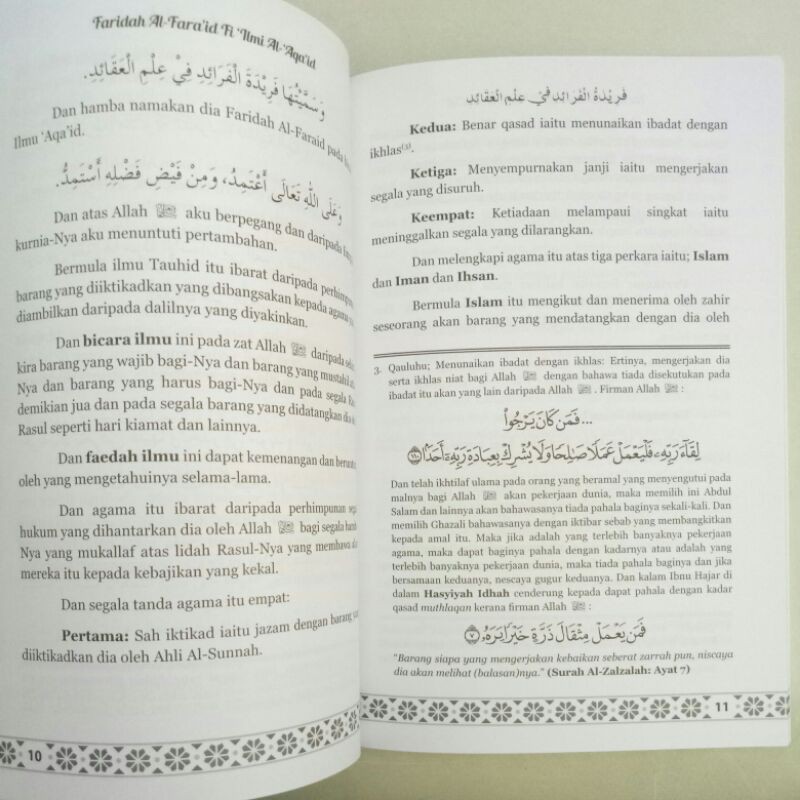 Faridah Al-Fara'id Fi 'Ilmi Al-'Aqa'id
وَسَمَّيْتُهَا فَرِيْدَةَ الْفَرَائِدِ فِيْ عِلْمِ الْعَقَائِدِ.
Dan hamba namakan dia Faridah Al-Faraid pada
Ilmu 'Aqa'id.
وَعَلَى اللهِ تَعَالَى أَعْتَمِدُ، وَمِنْ فَيْضِ فَضْلِهِ أَسْتَمِدُّ.
Dan atas Allah ﷻ aku berpegang dan daripada
kurnia-Nya aku menuntuti pertambahan.
Bermula ilmu Tauhid itu ibarat daripada perhimpunan
barang yang diiktikadkan yang dibangsakan kepada agama
diambilkan daripada dalilnya yang diyakinkan.
Dan bicara ilmu ini pada zat Allah ﷻ daripada
kira barang yang wajib bagi-Nya dan barang yang mustahil
Nya dan barang yang harus bagi-Nya dan pada segala
demikian jua dan pada segala barang yang didatangkan
Rasul seperti hari kiamat dan lainnya.
Dan faedah ilmu ini dapat kemenangan dan
oleh yang mengetahuinya selama-lama.
Dan agama itu ibarat daripada perhimpunan
hukum yang dihantarkan dia oleh Allah ﷻ bagi segala
Nya yang mukallaf atas lidah Rasul-Nya yang membawa
mereka itu kepada kebajikan yang kekal.
Dan segala tanda agama itu empat:
Pertama: Sah iktikad iaitu jazam dengan barang
diiktikadkan dia oleh Ahli Al-Sunnah.
10
فَرِيْدَةُ الْفَرَائِدِ فِيْ عِلْمِ الْعَقَائِدِ
Kedua: Benar qasad iaitu menunaikan ibadat dengan
ikhlas(3).
Ketiga: Menyempurnakan janji iaitu mengerjakan
segala yang disuruh.
Keempat: Ketiadaan melampaui singkat iaitu
meninggalkan segala yang dilarangkan.
Dan melengkapi agama itu atas tiga perkara iaitu; Islam
dan Iman dan Ihsan.
Bermula Islam itu mengikut dan menerima oleh zahir
seseorang akan barang yang mendatangkan dengan dia oleh
3. Qauluhu; Menunaikan ibadat dengan ikhlas: Ertinya, mengerjakan dia
serta ikhlas niat bagi Allah ﷻ dengan bahawa tiada disekutukan pada
ibadat itu akan yang lain daripada Allah ﷻ. Firman Allah ﷻ:
...فَمَن كَانَ يَرْجُواْ
لِقَآءَ رَبِّهِۦ فَلْيَعْمَلْ عَمَلًا صَٰلِحًا وَلَا يُشْرِكْ بِعِبَادَةِ رَبِّهِۦٓ أَحَدًۢا ١١٠
Dan telah ikhtilaf ulama pada orang yang beramal yang menyengutui pada
malnya bagi Allah ﷻ akan pekerjaan dunia, maka memilih ini Abdul
Salam dan lainnya akan bahawasanya tiada pahala baginya sekali-kali. Dan
memilih Ghazali bahawasanya dengan iktibar sebab yang membangkitkan
kepada amal itu. Maka jika adalah yang terlebih banyaknya pekerjaan
agama, maka dapat baginya pahala dengan kadarnya atau adalah yang
terlebih banyaknya pekerjaan dunia, maka tiada pahala baginya dan jika
bersamaan keduanya, nescaya gugur keduanya. Dan kalam Ibnu Hajar di
dalam Hasyiyah Idhah cenderung kepada dapat pahala dengan kadar
qasad muthlaqan kerana firman Allah ﷻ:
فَمَن يَعْمَلْ مِثْقَالَ ذَرَّةٍ خَيْرًا يَرَهُۥ ٧
"Barang siapa yang mengerjakan kebaikan seberat zarrah pun, niscaya
dia akan melihat (balasan)nya." (Surah Al-Zalzalah: Ayat 7)
11